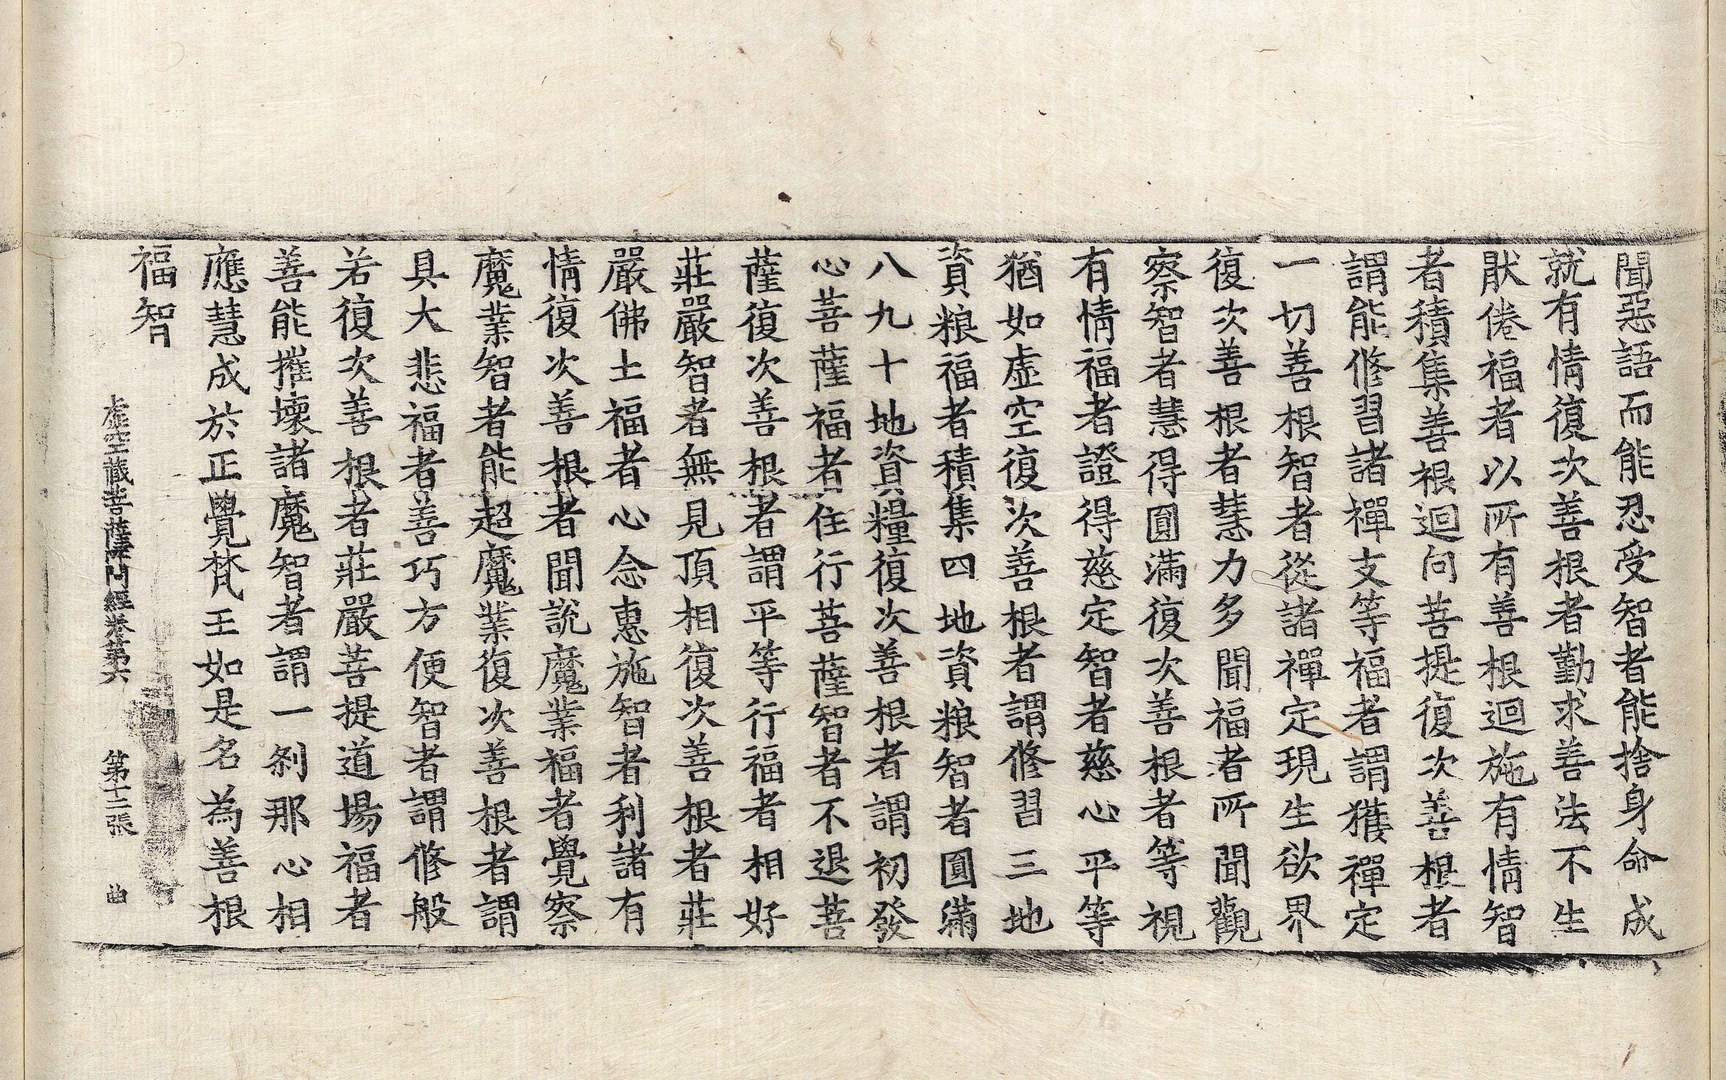 聞惡語而能忍受智者能捨身命成
就有情復次善根者勤求善法不生
猒倦福者以所有善根迴施有情智
者積集善根迴向菩提復次善根者
謂能修習諸禪支等福者謂獲禪定
一切善根智者從諸禪定現生欲界
復次善根者慧力多聞福者所聞觀
察智者慧得圓滿復次善根者等視
有情福者證得慈定智者慈心平等
猶如虛空復次善根者謂修習三地
資粮福者積集四地資粮智者圓滿
八九十地資糧復次善根者謂初發
心菩薩福者住行菩薩智者不退菩
薩復次善根者謂平等行福者相好
莊嚴智者無見頂相復次善根者莊
嚴佛土福者心念惠施智者利諸有
情復次善根者聞說魔業福者覺察
魔業智者能超魔業復次善根者謂
具大悲福者善巧方便智者謂修般
若復次善根者莊嚴菩提道場福者
善能摧壞諸魔智者謂一剎那心相
應慧成於正覺梵王如是名為善根
福智
虛空藏菩薩所問經卷第六 第十二張 曲